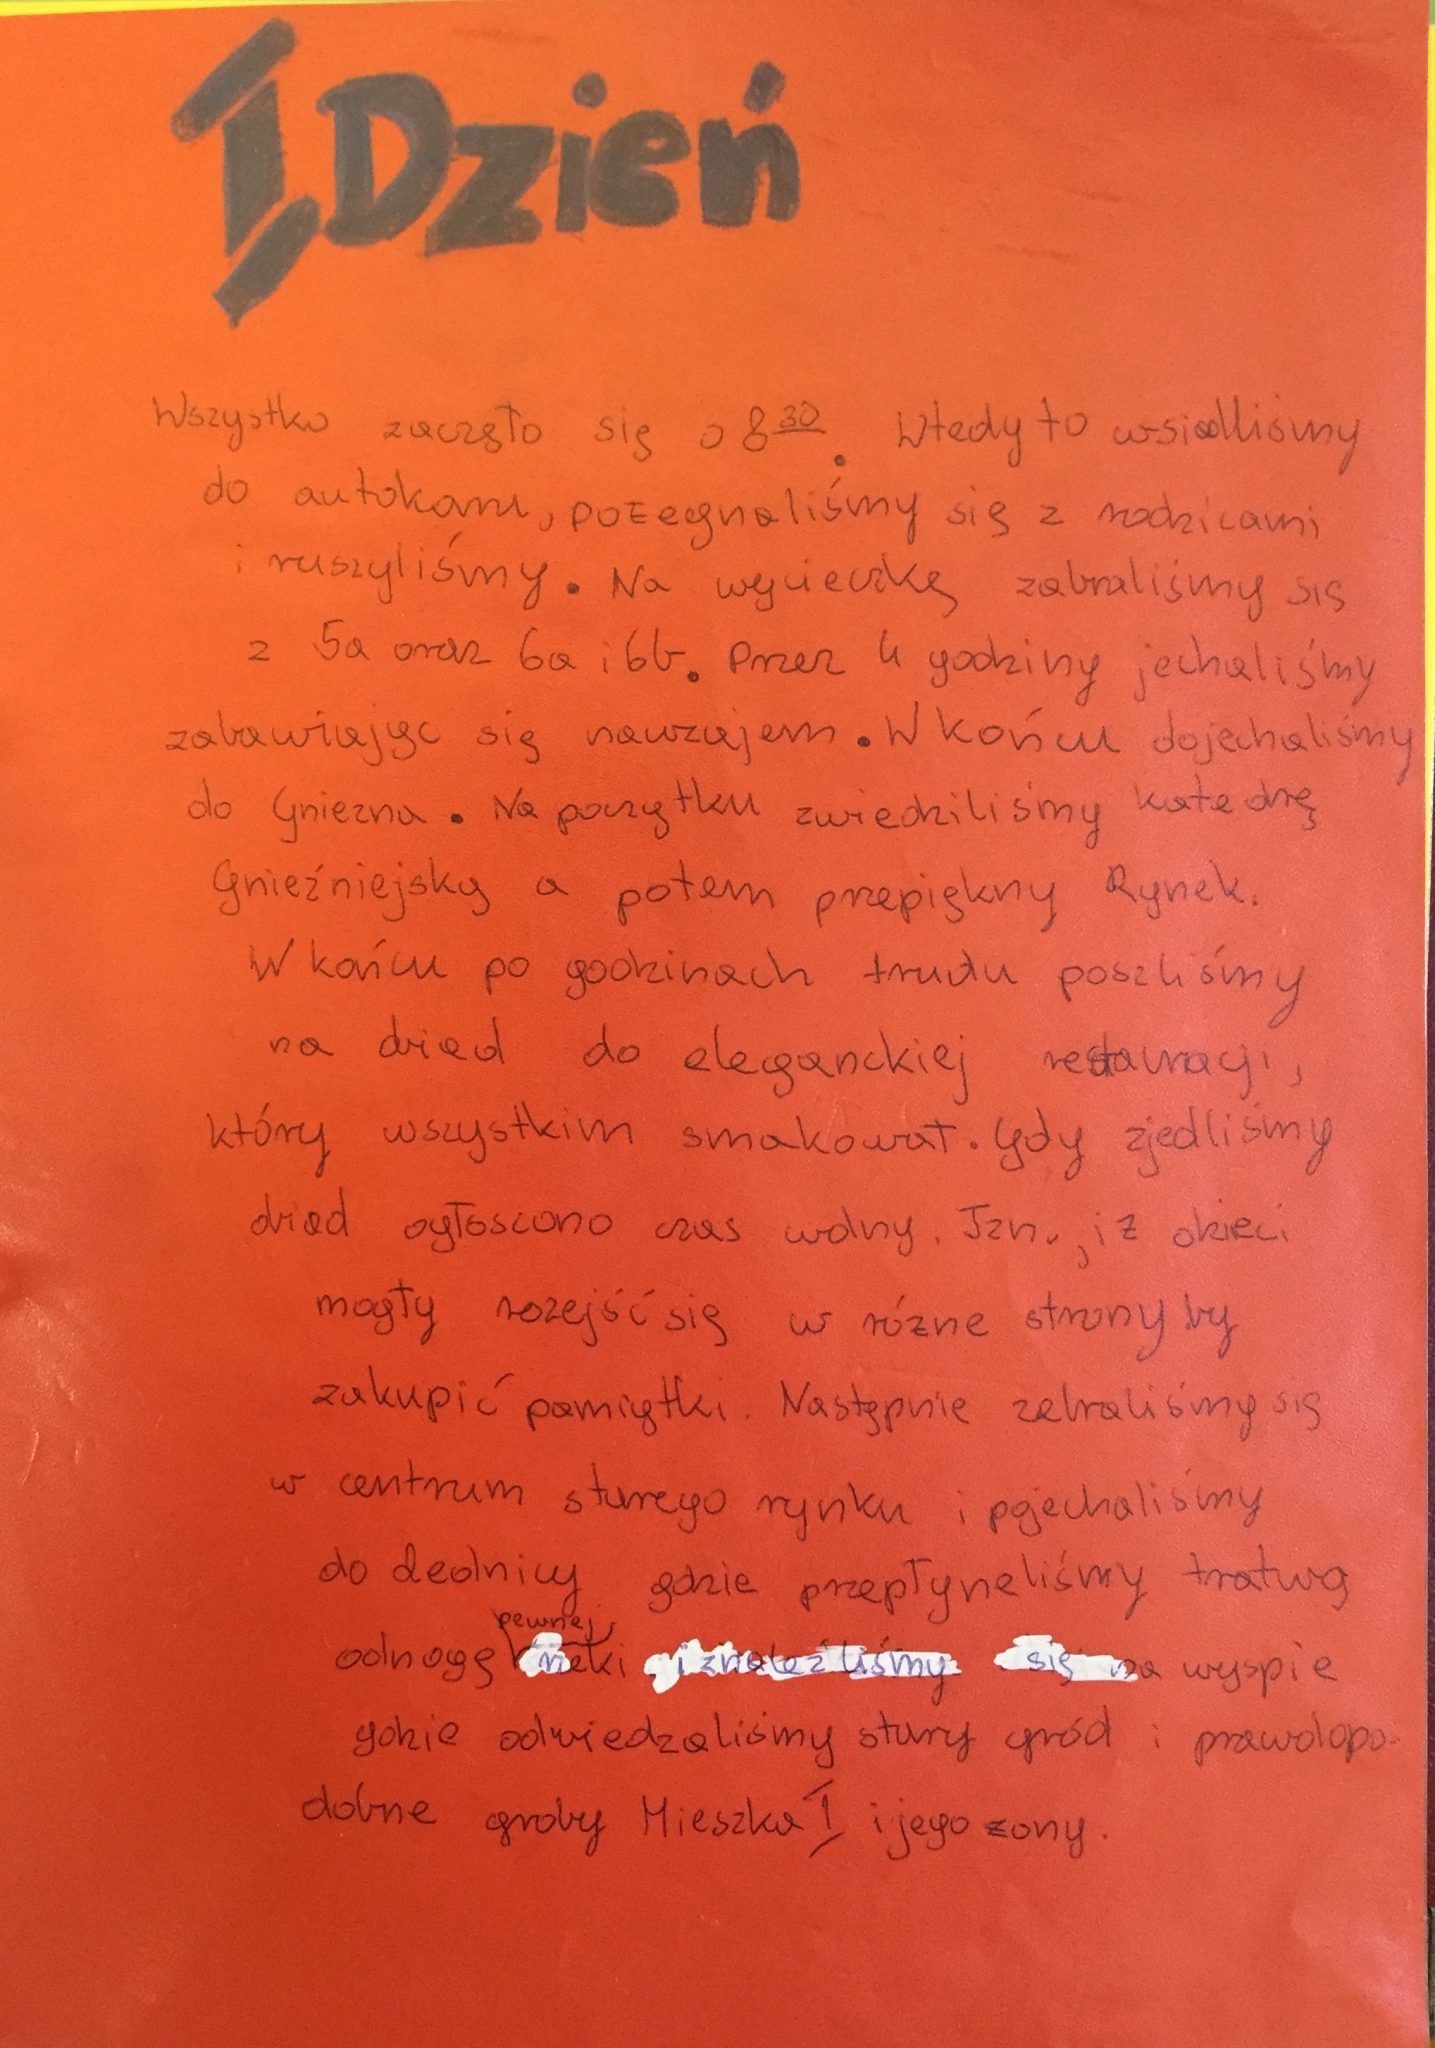 I Dzień
Wszystko zaczęło się o 8 30. Wtedy to wsiedliśmy
do autokaru, pożegnaliśmy się z rodzicami
i ruszyliśmy. Na wycieczkę zabraliśmy się
z 5a oraz 6a i 6b. Przez 4 godziny jechaliśmy
zabawiając się nawzajem. W końcu dojechaliśmy
do Gniezna. Na początku zwiedziliśmy katedrę
Gnieźniejską a potem przepiękny Rynek.
W końcu po godzinach trudu poszliśmy
na obiad do eleganckiej restauracji,
który wszystkim smakował. Gdy zjedliśmy
obiad ogłoscono czas wolny. Tzn., iż dzieci
mogły rozejść się w różne strony by
zakupić pamiątki. Następnie zebraliśmy się
w centrum starego rynku i pojechaliśmy
do Lednicy gdzie przepłyneliśmy tratwą
odnogę pewnej rzeki i znaleźliśmy się na wyspie
gdzie odwiedzaliśmy stary gród i prawdopo-
dobne groby Mieszka I i jego żony.